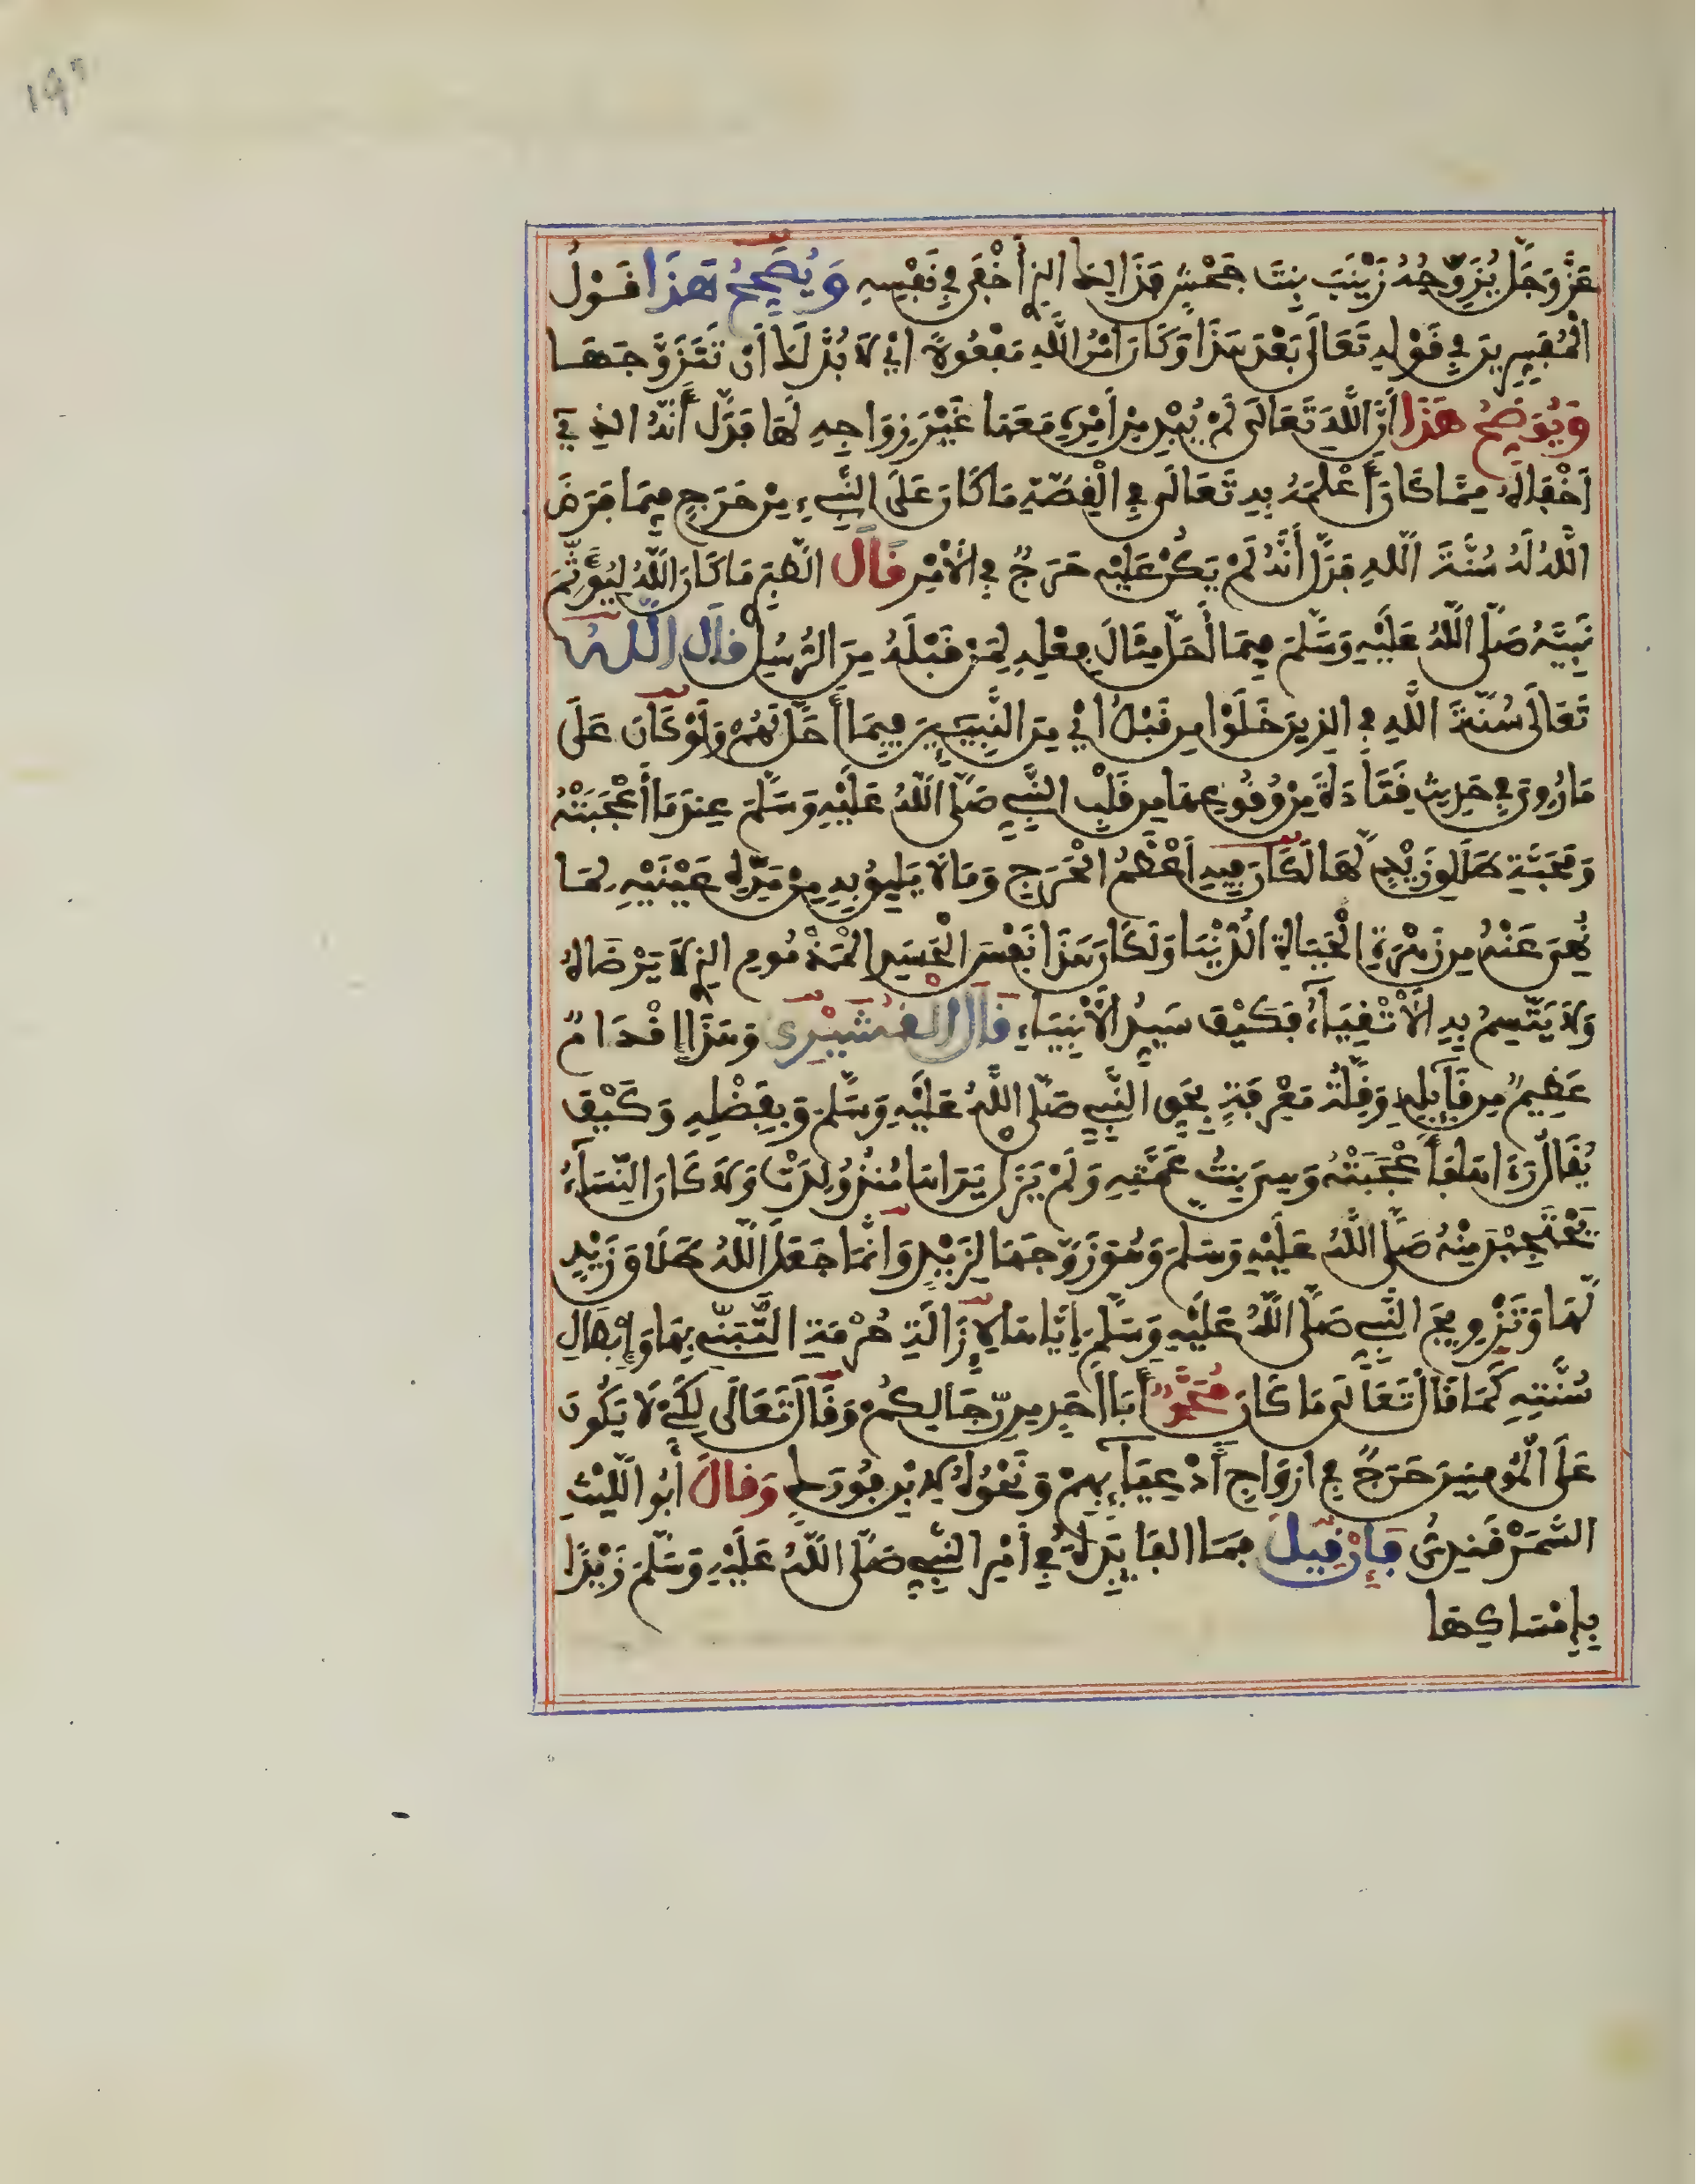 ١٩٦
عَزَّ وَجَلَّ يُزَوِّجُهُ زَيْنَبَ بِنْتَ جَحْشٍ فَذَالِكَ الذِي أَخْفَى فِي نَفْسِهِ وَيُصَحِّحُ هَذَا قَوْلُ
الْمُفَسِّرِينَ فِي قَوْلِهِ تَعَالَى بَعْدَ هَذَا وَكَانَ أَمْرُ اللَّهِ مَفْعُولًا أَيْ لَا بُدَّ لَكَ أَنْ تَتَزَوَّجَهَا
وَيُوَضِّحُ هَذَا أَنَّ اللَّهَ تَعَالَى لَمْ يُبْدِ مِنْ أَمْرِهِ مَعَهَا غَيْرَ زِوَاجِهِ لَهَا فَدَلَّ أَنَّهُ الذِي
أَخْفَاهُ مِمَّا كَانَ أَعْلَمَهُ بِهِ تَعَالَى فِي الْقِصَّةِ مَا كَانَ عَلَى النَّبِيءِ مِنْ حَرَجٍ فِيمَا فَرَضَ
اللَّهُ لَهُ سُنَّةَ اللَّهِ فَدَلَّ أَنَّهُ لَمْ يَكُنْ عَلَيْهِ حَرَجٌ فِي الْأَمْرِ قَالَ الطَّبَرِي مَا كَانَ اللَّهُ لِيُؤَثِّمَ
نَبِيَّهُ صَلَّى اللَّهُ عَلَيْهِ وَسَلَّمَ فِيمَا أَحَلَّ مِثَالَ فِعْلِهِ لِمَنْ قَبْلَهُ مِنَ الرُّسُلِ قَالَ اللَّهُ
تَعَالَى سُنَّةَ اللَّهِ فِي الذِينَ خَلَوْا مِن قَبْلُ أَيْ مِنَ النَّبِيِّينَ فِيمَا أَحَلَّ لَهُمْ وَلَوْ كَانَ عَلَى
مَا رُوِيَ فِي حَدِيثِ قَتَادَةَ مِنْ وُقُوعِهَا مِن قَلْبِ النَّبِيِّ صَلَّى اللَّهُ عَلَيْهِ وَسَلَّمَ عِندَمَا أَعْجَبَتْهُ
وَمَحَبَّتِهِ طَلَاقَ زَيْدٍ لَهَا لَكَانَ فِيهِ أَعْظَمُ الْحَرَجِ وَمَا لَا يَلِيقُ بِهِ مِنْ مَدِّهِ عَيْنَيْهِ لِمَا
نُهِيَ عَنْهُ مِن زَهْرَةِ الْحَيَاةِ الدُّنْيَا وَلَكَانَ هَذَا نَفْسَ الْحَسَدِ الْمَذْمُومِ الذِي لَا يَرْضَاهُ
وَلَا يَتَّسِمُ بِهِ الْأَتْقِيَاءُ فَكَيْفَ سَيِّدُ الْأَنْبِيَاءِ قَالَ الْقُشَيْرِي وَهَذَا إِقْدَامٌ
عَظِيمٌ مِن قَائِلِهِ وَقِلَّةُ مَعْرِفَةٍ بِحَقِّ النَّبِيِّ صَلَّى اللَّهُ عَلَيْهِ وَسَلَّمَ وَبِفَضْلِهِ وَكَيْفَ
يُقَالُ رَءَاهَا فَأَعْجَبَتْهُ وَهِيَ بِنْتُ عَمَّتِهِ وَلَمْ يَزَلْ يَرَاهَا مُنْذُ وُلِدَتْ وَلَا كَانَ النِّسَاءُ
يَحْتَجِبْنَ مِنْهُ صَلَّى اللَّهُ عَلَيْهِ وَسَلَّمَ وَهُوَ زَوَّجَهَا لِزَيْدٍ وَإِنَّمَا جَعَلَ اللَّهُ طَلَاقَ زَيْدٍ
لَهَا وَتَزْوِيجَ النَّبِيِّ صَلَّى اللَّهُ عَلَيْهِ وَسَلَّمَ إِيَّاهَا لِإِزَالَةِ حُرْمَةِ التَّبَنِّي بِهَا وَإِبْطَالِ
سُنَّتِهِ كَمَا قَالَ تَعَالَى مَا كَانَ مُحَمَّدٌ أَبَا أَحَدٍ مِن رِّجَالِكُمْ وَقَالَ تَعَالَى لِكَيْ لَا يَكُونَ
عَلَى الْمُومِنِينَ حَرَجٌ فِي أَزْوَاجِ أَدْعِيَائِهِمْ وَنَحْوُهُ لِابْنِ فُورَكٍ وَقَالَ أَبُو اللَّيْثِ
السَّمَرْقَنْدِيُّ فَإِنْ قِيلَ فَمَا الْفَائِدَةُ فِي أَمْرِ النَّبِيِّ صَلَّى اللَّهُ عَلَيْهِ وَسَلَّمَ زَيْدًا
بِإِمْسَاكِهَا